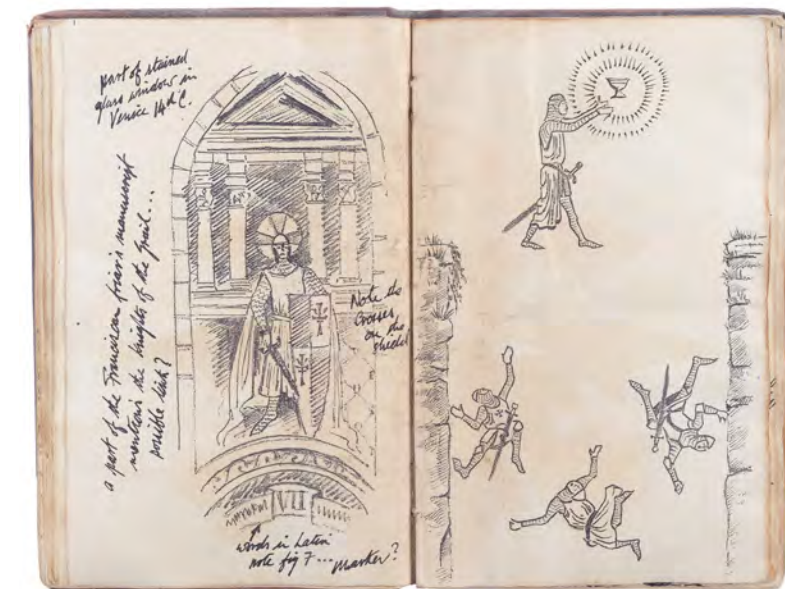 part of stained
glass window in
Venice 14th C.
a part of the Franciscan friar's manuscript
mentions the knights of the Grail...
possible link?
Note the
Crosses
on the
shield
VII
words in Latin
note fig 7... marker?